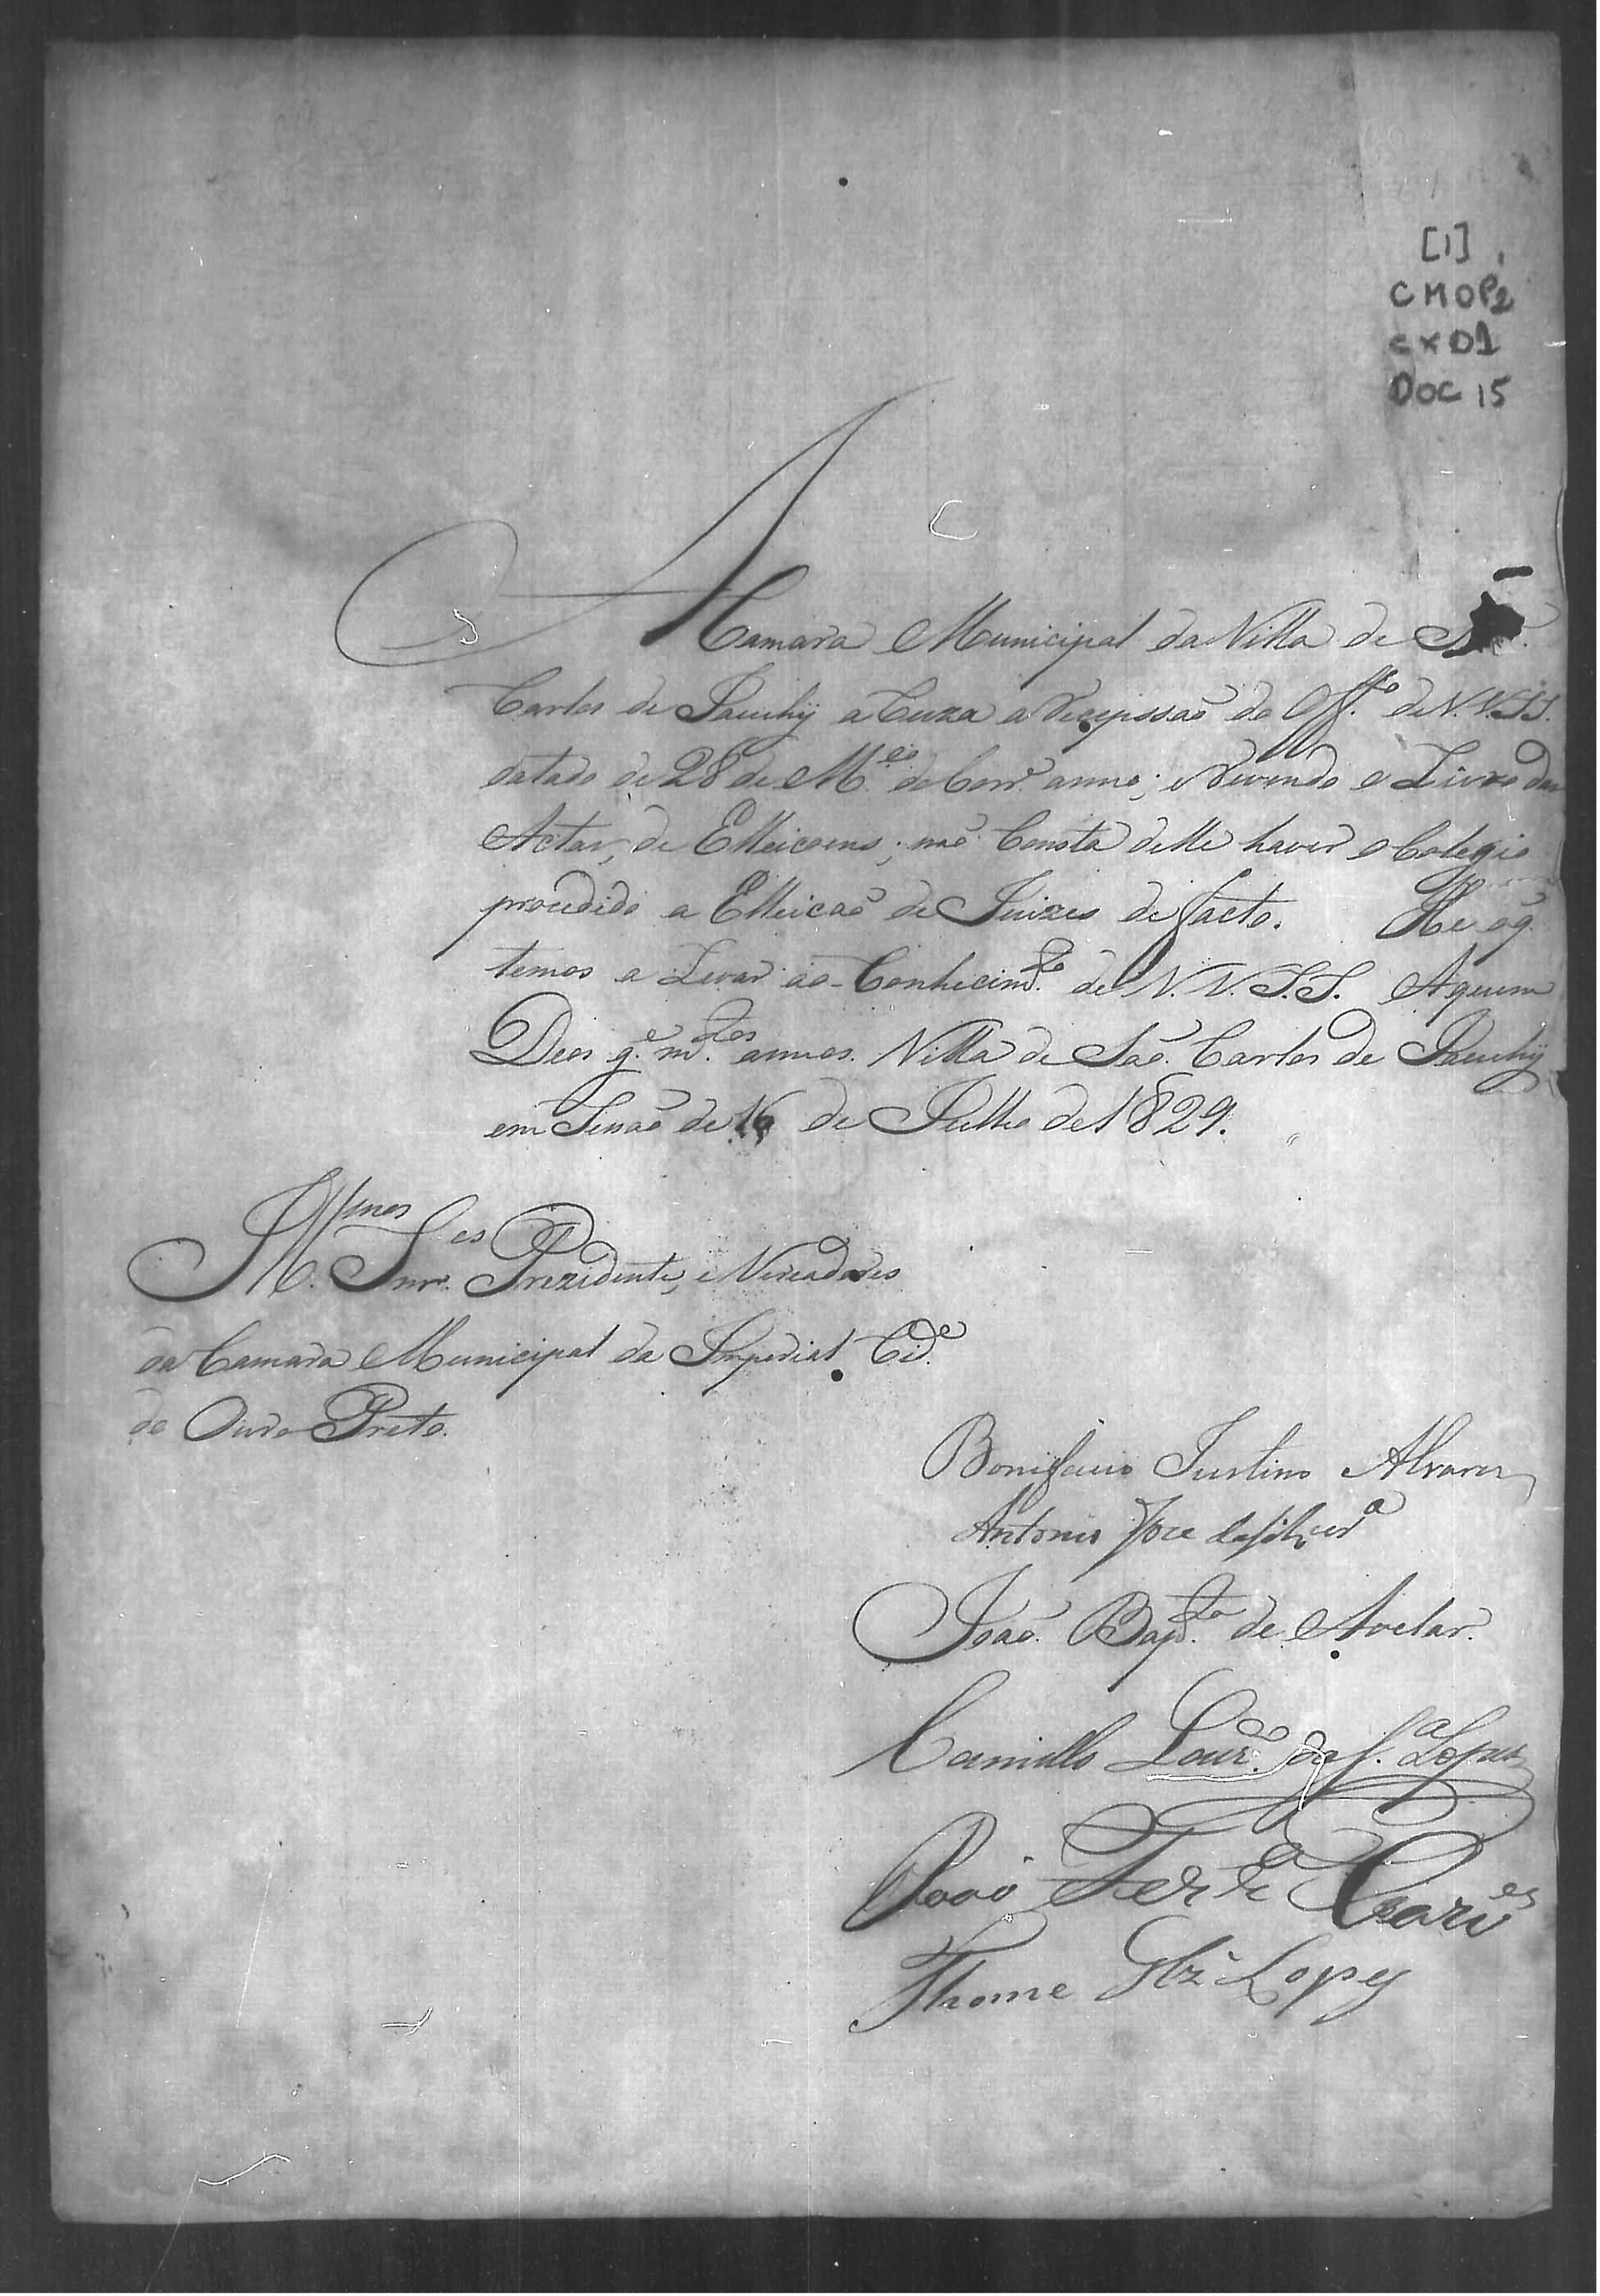 [1]
CMOP2
CX01
DOC 15
A Camara Municipal da Villa de
Carlos de Jacuhÿ acuza a recepssaõ do Off.º de V.V.S.S.
datado de 28 de M.ço do Corr.e anno; e revendo o Livro das
Actas, de Elleicoens; naõ Consta delle haver o Colegio
procedido a Elleicaõ de Juizes de facto. He o q
temos a Levar ao Conhecim.to de V.V.S.S. Aquem
Deos g.e m.tos annos. Villa de Saõ Carlos de Jacuhÿ
em Sessaõ de 16 de Julho de 1829.
Ill.mos Snr.es Prezidente, e Vereadores
da Camara Municipal da Imperial Cid.e
do Ouro Preto.
Bonifacio Justino Alvares
Antonio Joze da Silveir.a
João Bap.ta de Avelar.
Camillo Lour.ço da S.a Lopes
João Ferr.a
Thome Glz Lopes